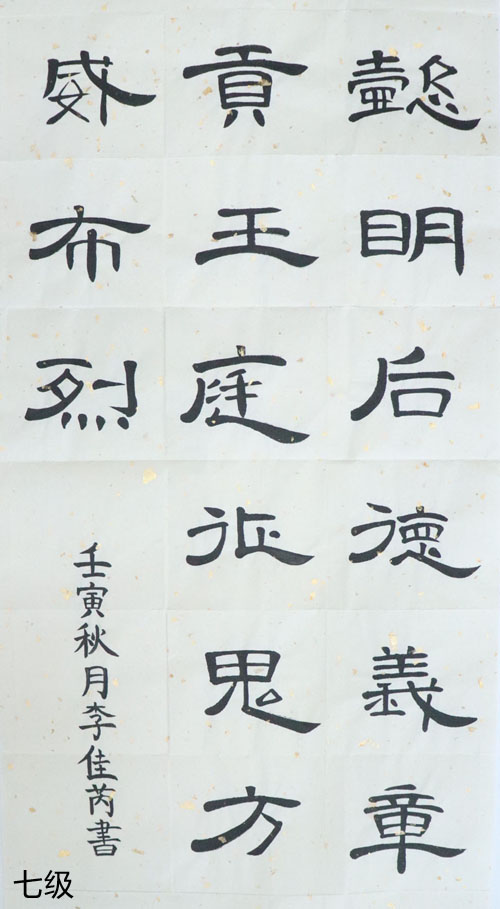 懿明后德義章
貢王庭征鬼方
威布烈
壬寅秋月李佳芮書
七级